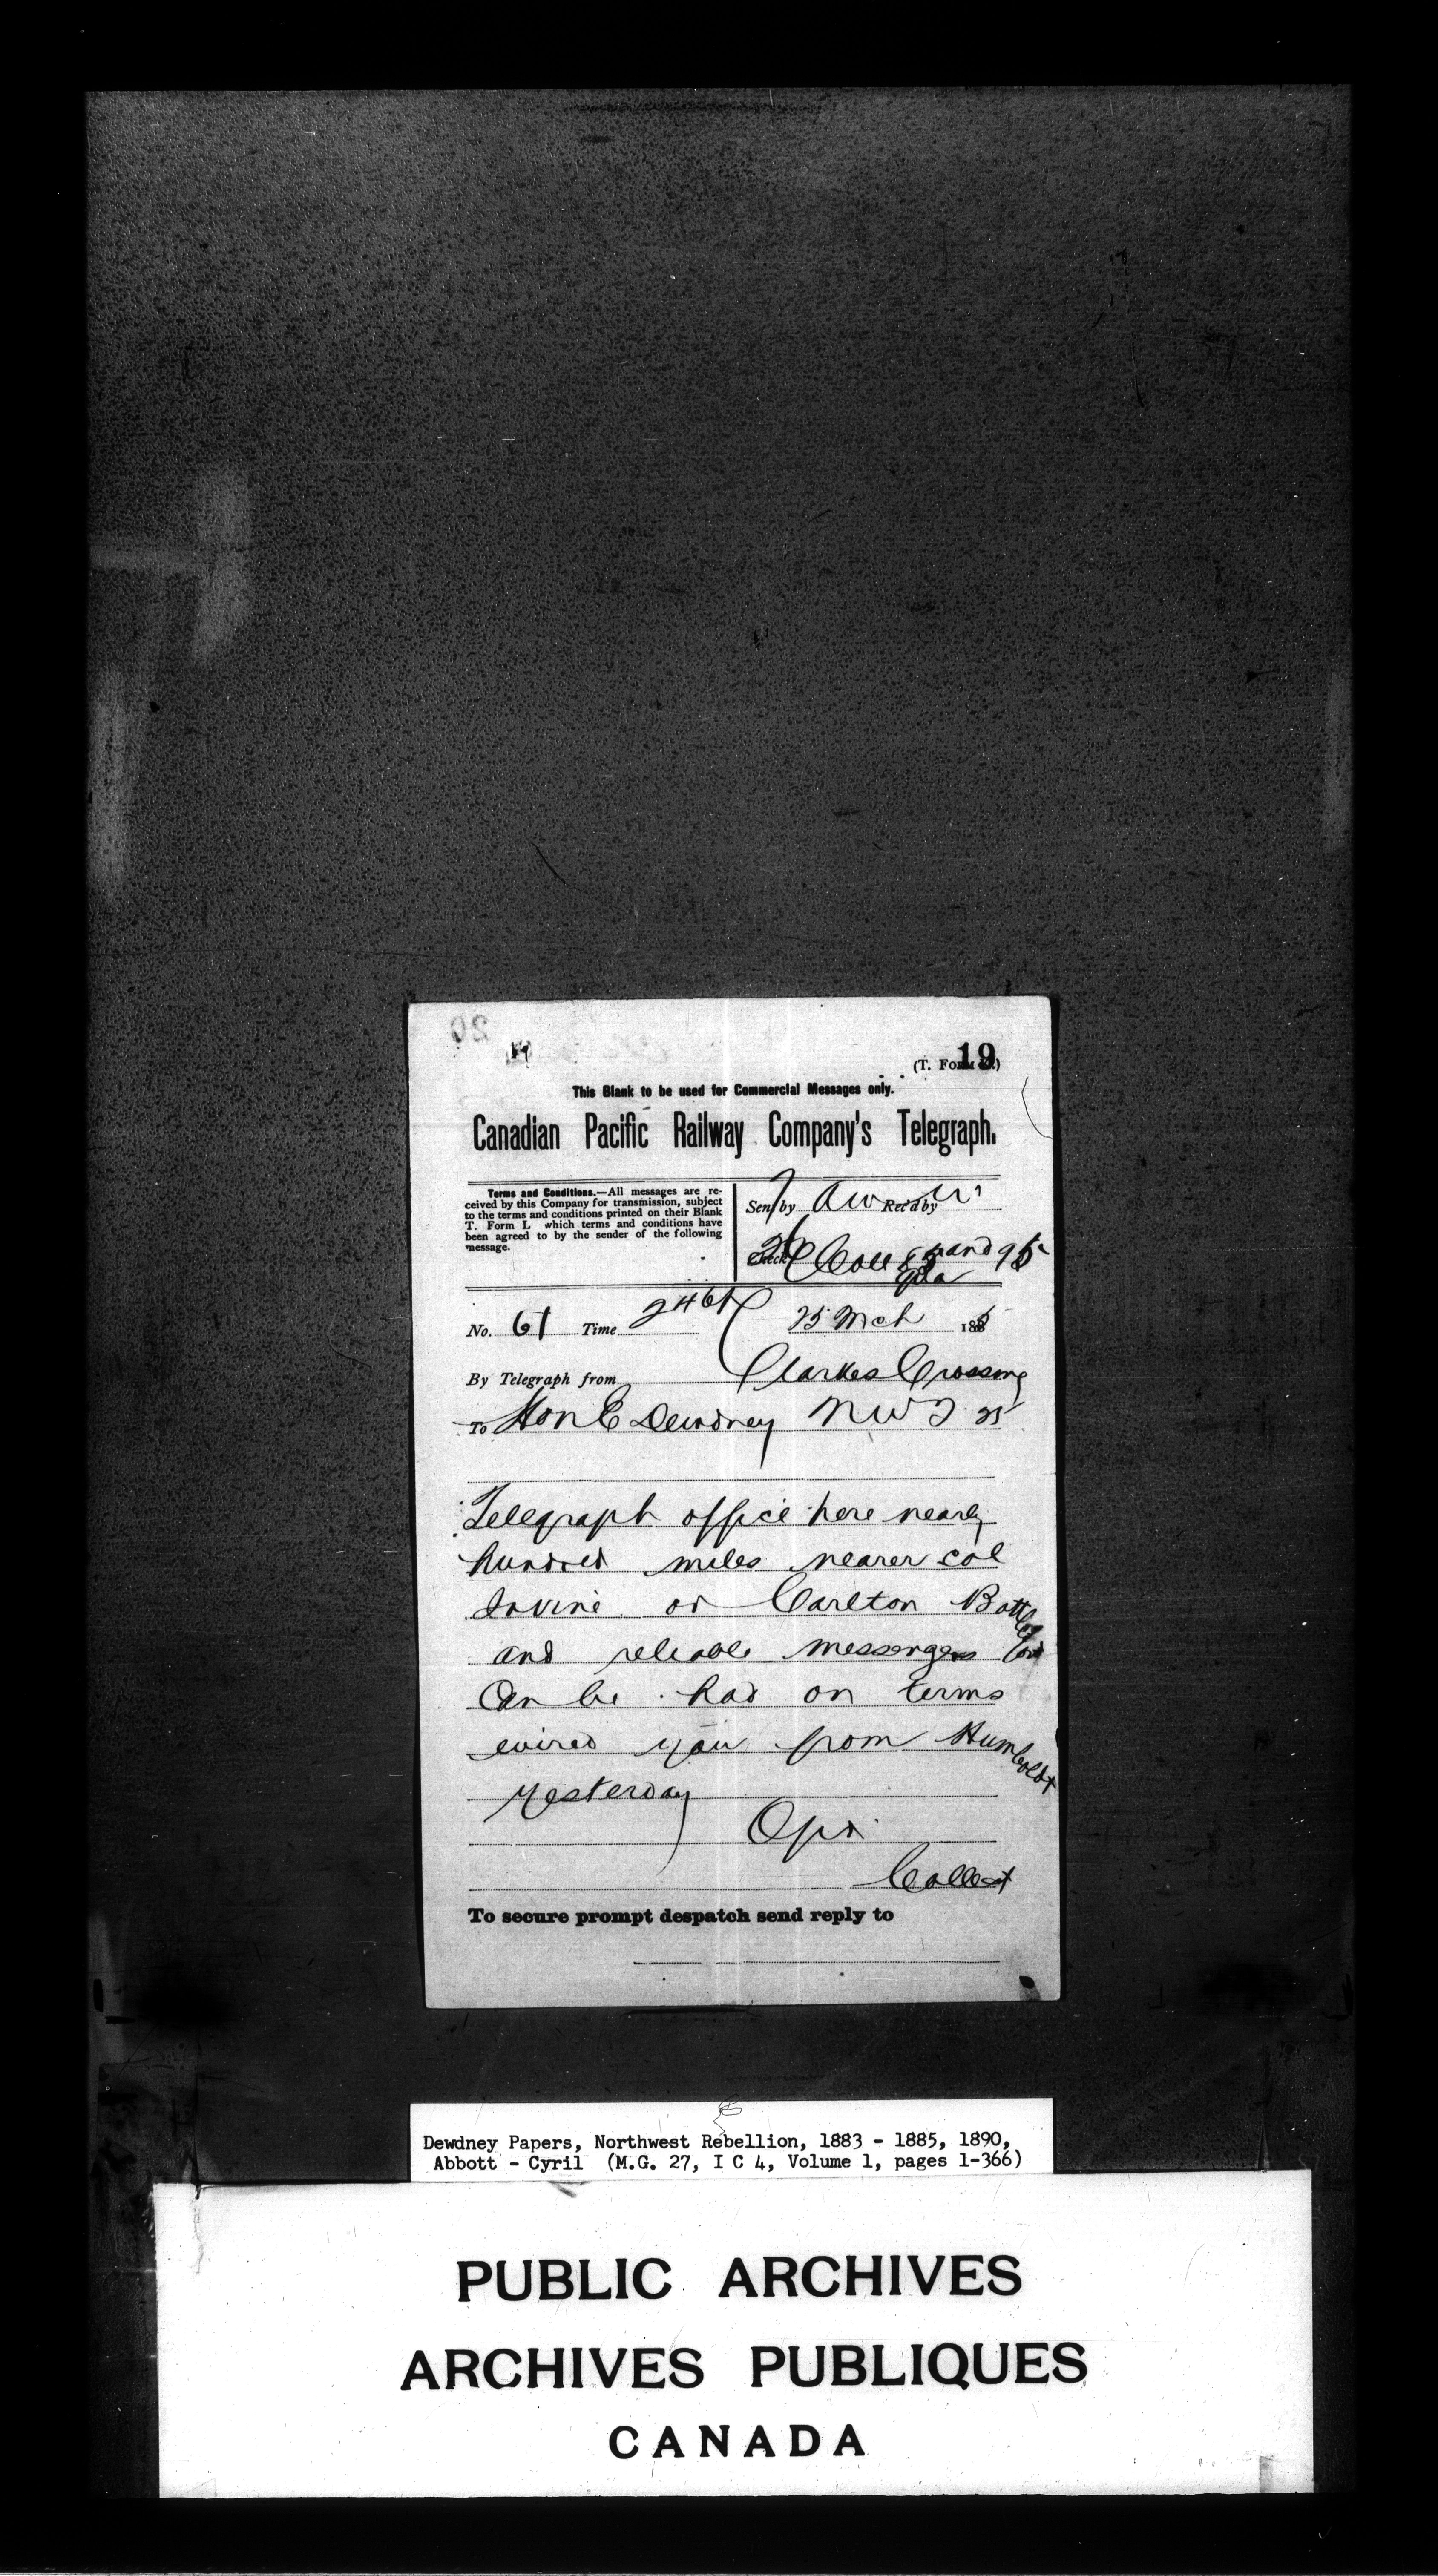 20
19
(T. Form
This Blank to be used for Commercial Messages only.
Canadian Pacific Railway Company's Telegraph.
Terms and Conditions.—All messages are re-
ceived by this Company for transmission, subject
to the terms and conditions printed on their Blank
T. Form L which terms and conditions have
been agreed to by the sender of the following
message.
Sent by Rec'd by
Check 26 Coll and 95
No. 61 Time 25 Mch 1885
By Telegraph from Clarkes Crossing
To Hon E Dewdney NWT 25
Telegraph office here nearly
hundred miles nearer col
Irvine or Carlton Battleford
and reliable messengers
Can be had on terms
wired you from Humboldt
yesterday
Opr
Collect
To secure prompt despatch send reply to
Dewdney Papers, Northwest Rebellion, 1883 - 1885, 1890,
Abbott - Cyril (M.G. 27, I C 4, Volume 1, pages 1-366)
PUBLIC ARCHIVES
ARCHIVES PUBLIQUES
CANADA